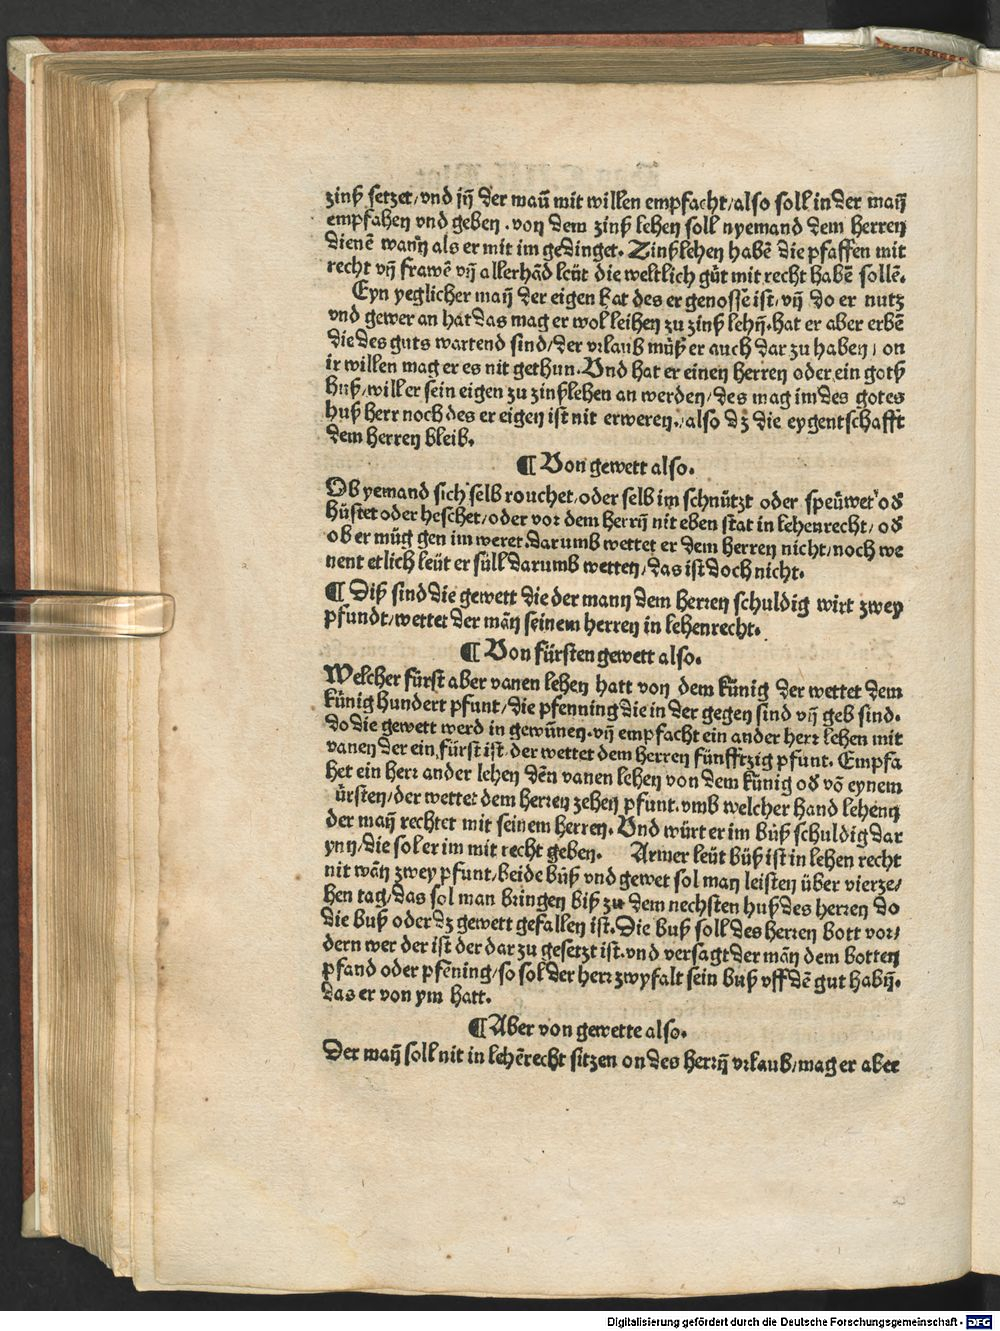 zinß setzet/vnd jn̄ der man̄ mit willen empfacht/also soll in der man̄
empfahen vnd geben. von dem zinß lehen soll nyemand dem herren
dienē wan̄ als er mit im gedinget. Zinßlehen habē die pfaffen mit
recht vn̄ frawē vn̄ allerhād leüt die weltlich gůt mit recht habē sollē.
Eyn yeglicher man̄ der eigen hat des er genosse ist/vn̄ do er nutz
vnd gewer an hat das mag er wol leihen zu zinß lehn̄.hat er aber erbē
die des guts wartend sind/der vrlaub můß er auch dar zu haben/on
ir willen mag er es nit gethun.Vnd hat er einen herren oder ein gotß
huß/will er sein eigen zu zinßlehen an werden/des mag im des gotes
huß herr noch des er eigen ist nit erweren./also dz die eygentschafft
dem herren bleib.
¶ Von gewett also.
Ob yemand sich selb rouchet/oder selb im schnützt oder speüwet od
hůstet oder heschet/oder vor dem herrn̄ nit eben stat in lehenrecht/od
ob er mug gen im weret.darumb wettet er dem herren nicht/noch we
nent etlich leüt er süll darumb wetten/das ist doch nicht.
¶ Diß sind die gewett die der mann dem herren schuldig wirt zwey
pfundt/wettet der mān seinem herren in lehenrecht.
¶ Von fürsten gewett also.
Welcher fürst aber vanen lehen hatt von dem künig der wettet dem
künig hundert pfunt/die pfenning die in der gegen sind vn̄ geb sind.
do die gewett werd in gewunnen.vn̄ empfacht ein ander herr lehen mit
vanen der ein fürst ist/der wettet dem herren fünfftzig pfunt. Empfa
het ein herr ander lehen den̄ vanen lehen von dem künig od vō eynem
ürsten/der wettet dem herren zehen pfunt.vmb welcher hand lehenn
der man̄ rechtet mit seinem herren. Vnd würt er im bůß schuldig dar
ynn/die sol er im mit recht geben. Armer leüt bůß ist in lehen recht
nit wān zwey pfunt/beide bůß vnd gewet sol man leisten über vierze/
hen tag/das sol man bringen biß zu dem nechsten huß des herren do
die buß oder dz gewett gefallen ist.Die buß soll des herren bott vor/
dern wer der ist der dar zu gesetzt ist.vnd versagt der mān dem botten
pfand oder pfēning/so sol der herr zwyfalt sein buß vff dē gut habn̄.
das er von ym hatt.
¶ Aber von gewette also.
Der man̄ soll nit in lehērecht sitzen on des herrn̄ vrlaub/mag er aber
Digitalisierung gefördert durch die Deutsche Forschungsgemeinschaft - DFG